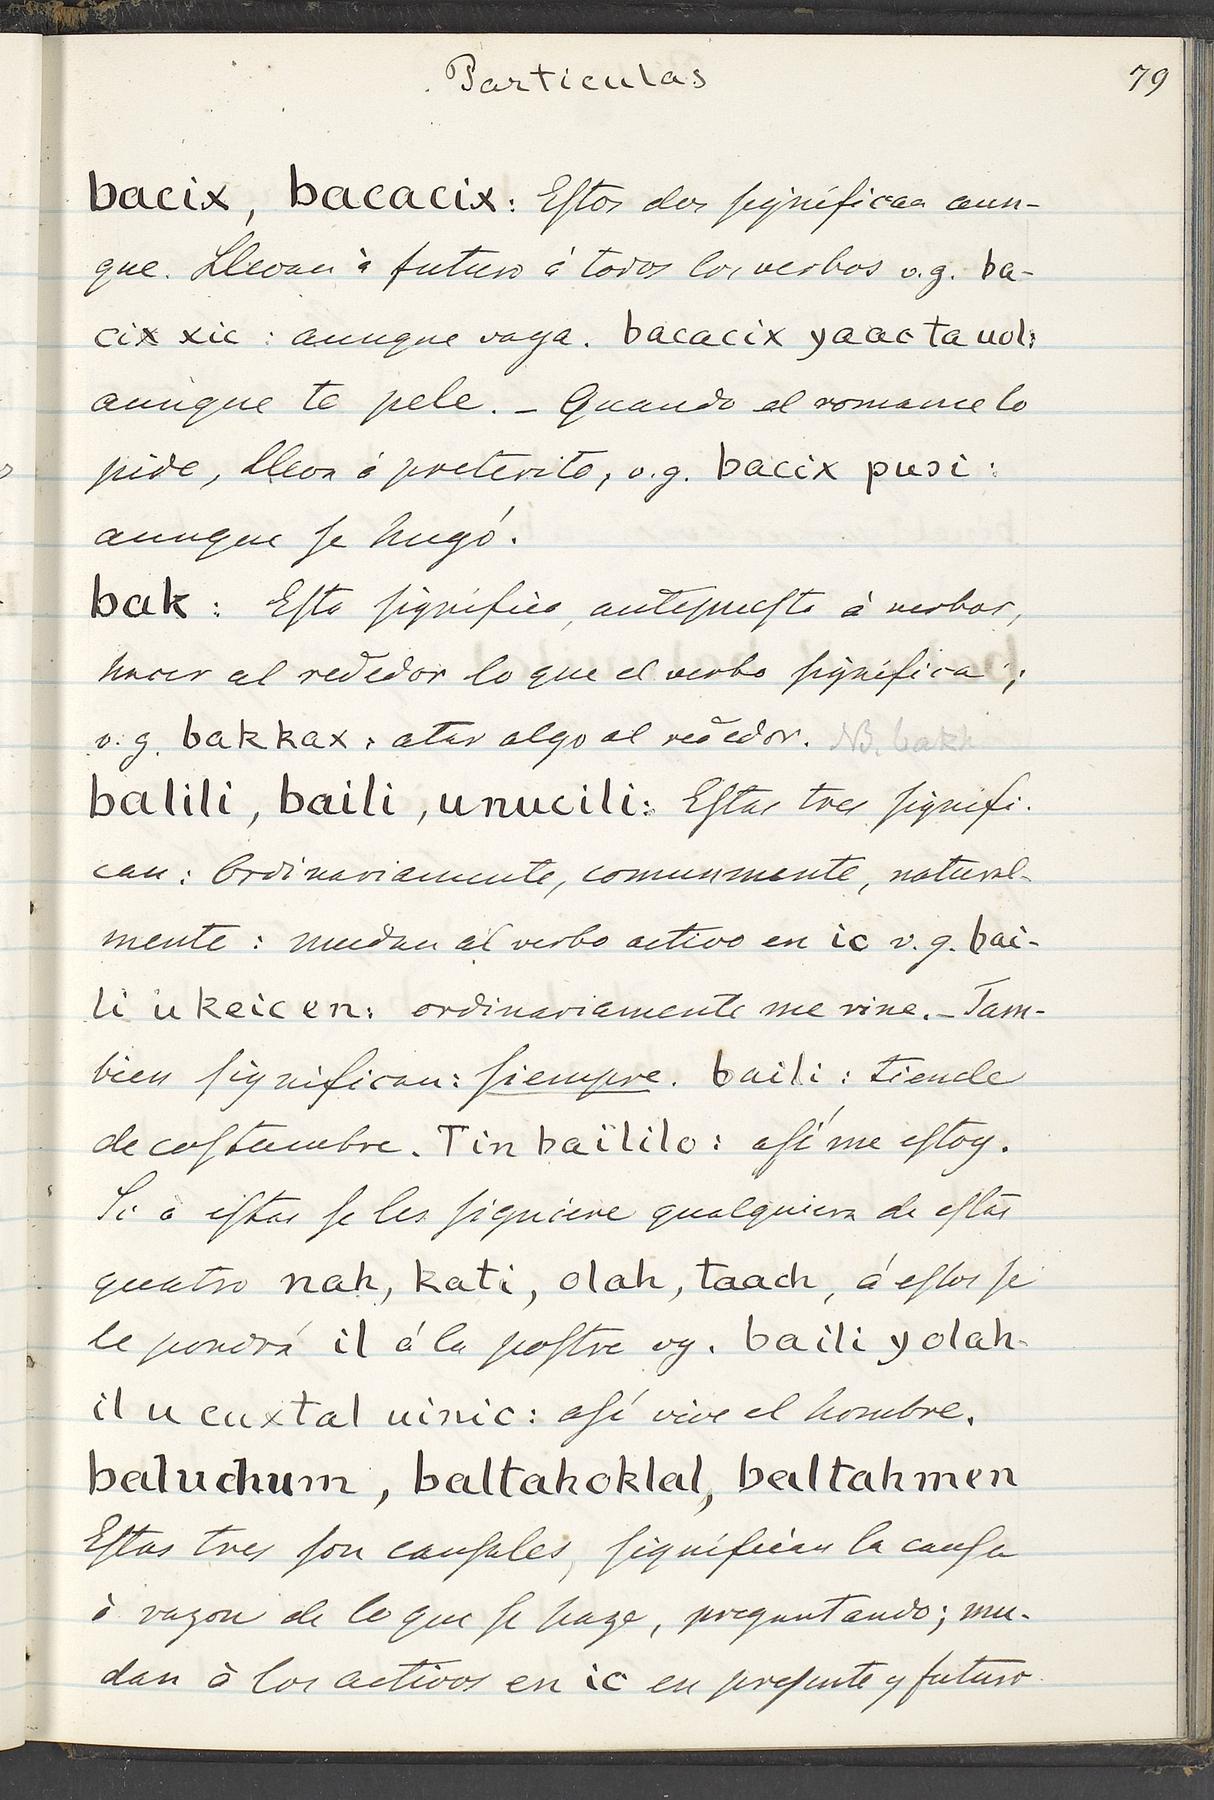 Particulas 79
bacix, bacacix: Estos dos significan aun-
que. Llevan à futuro á todos los verbos v.g. ba-
cix xic: aunque vaya. bacacix yaac ta uol:
aunque te pele. – Quando el romance lo
pide, lleva á preterito, v.g. bacix pusi:
aunque se hugó.
bak: Esta significa, antepuesta à verbos,
hacer al rededor lo que el verbo significa;
v.g. bakkax: atar algo al rededor. NB. bakh
balili, baili, unucili: Estas tres signifi-
can: Ordinariamente, comunmente, natural-
mente: mudan al verbo activo en ic v.g. bai-
li ukeicen: ordinariamente me rine. – Tam-
bien significan: siempre. baili: tiende
de costumbre. Tin baililo: así me estoy.
Si à estas se les siguiere qualquiera de estas
quatro nah, kati, olah, taach, á estos se
le pondrá il á la postre vg. baili yolah-
il u cuxtal uinic: así vive el hombre.
baluchum, baltahoklal, baltahmen
Estas tres son causales, significan la causa
ò razon de lo que se haze, preguntando; mu-
dan à los activos en ic en presente y futuro